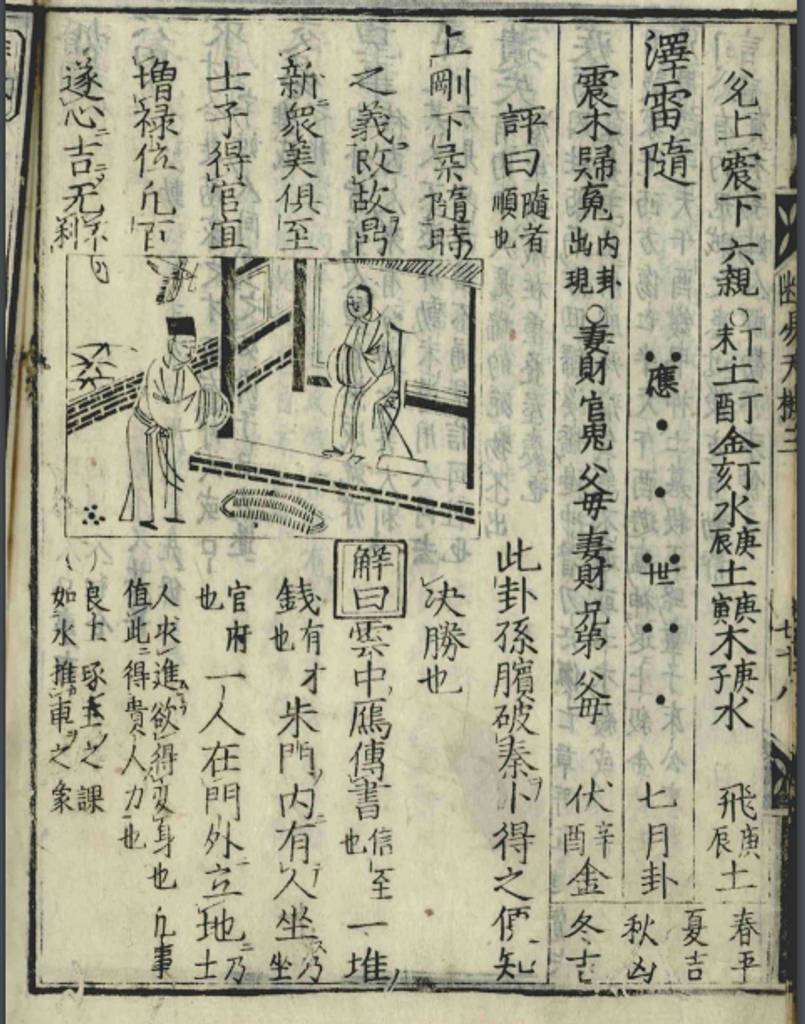 兌上震下六親○丁未土丁酉金丁亥水庚辰土庚寅木庚子水 飛庚辰土
春平
夏吉
澤雷隨 應 世 七月卦
秋凶
震木歸䰟内卦出現○妻財官鬼父母妻財兄弟父母 伏辛酉金
冬吉
評曰隨者順也
此卦孫臏破秦卜得之便知
上剛下柔隨時
决勝也
之義改故
解曰雲中鴈傳書信至也一堆
新衆美俱至
錢有才也朱門内有人坐乃坐
士子得官宜
官府也一人在門外立地乃士
增禄位凢百
人求進欲得变身也凢事
值此得貴人力也
遂心吉无不利
良工琢玉之課
如水推車之象
易天機三
七十八